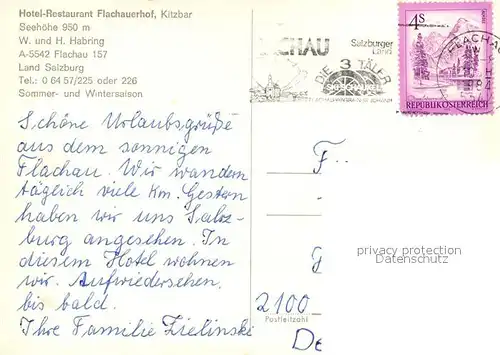 Hotel-Restaurant Flachauerhof, Kitzbar
Seehöhe 950 m
W. und H. Habring
A-5542 Flachau 157
Land Salzburg
Tel.: 0 64 57/225 oder 226
Sommer- und Wintersaison
ACHAU
Salzburger
Land
DIE 3 TÄLER
4s
REPUBLIK ÖSTERREICH
FLACHAU
Schöne Urlaubsgrüße
aus dem sonnigen
Flachau. Wir wandern
täglich viele Km. Gestern
haben wir uns Salz-
burg angesehen. In
diesem Hotel wohnen
wir. Aufwiedersehen,
bis bald.
Ihre Familie Zielinski
F
privacy protection
Datenschutz
2100
Postleitzahl
De